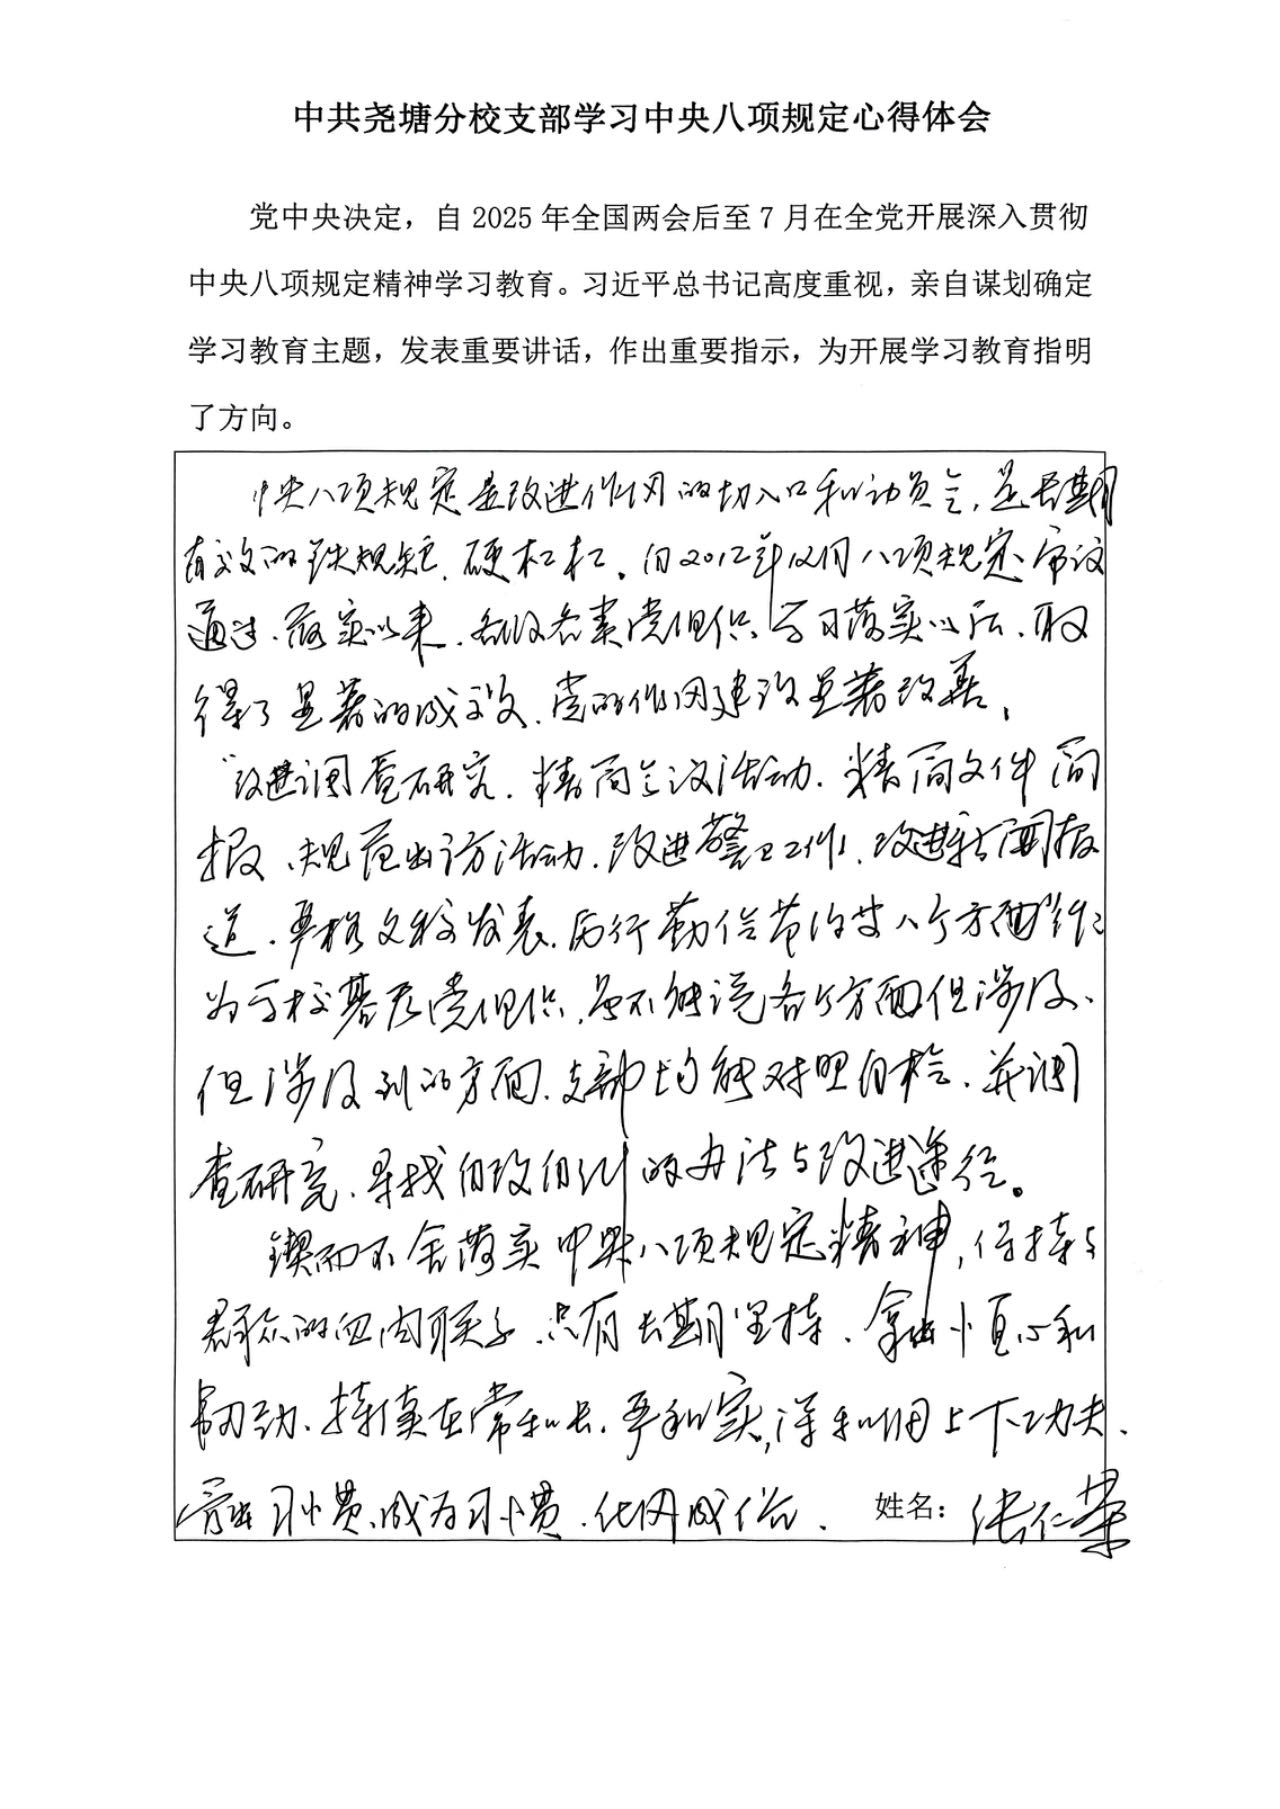 中共尧塘分校支部学习中央八项规定心得体会
党中央决定，自 2025 年全国两会后至 7 月在全党开展深入贯彻
中央八项规定精神学习教育。习近平总书记高度重视，亲自谋划确定
学习教育主题，发表重要讲话，作出重要指示，为开展学习教育指明
了方向。
中央八项规定是改进作风的切入口和动员令，是长期
有效的铁规矩、硬杠杠。自2012年12月八项规定审议
通过、落实以来，各级各类党组织学习落实以后，取
得了显著的成效，党的作风建设显著改善。
“改进调查研究，精简会议活动，精简文件简
报，规范出访活动，改进警卫工作，改进新闻报
道，严格文稿发表，厉行勤俭节约等八个方面”
为学校基层党组织，虽不能说各个方面但涉及，
但涉及到的方面，支部均能对照自检，并调
查研究，寻找自改自纠的办法与改进途径。
锲而不舍落实中央八项规定精神，保持与
群众的血肉联系，只有长期坚持，拿出恒心和
韧劲，持续在常和长，严和实，深和细上下功夫，
习惯，成为习惯，化风成俗。 姓名：张仁荣